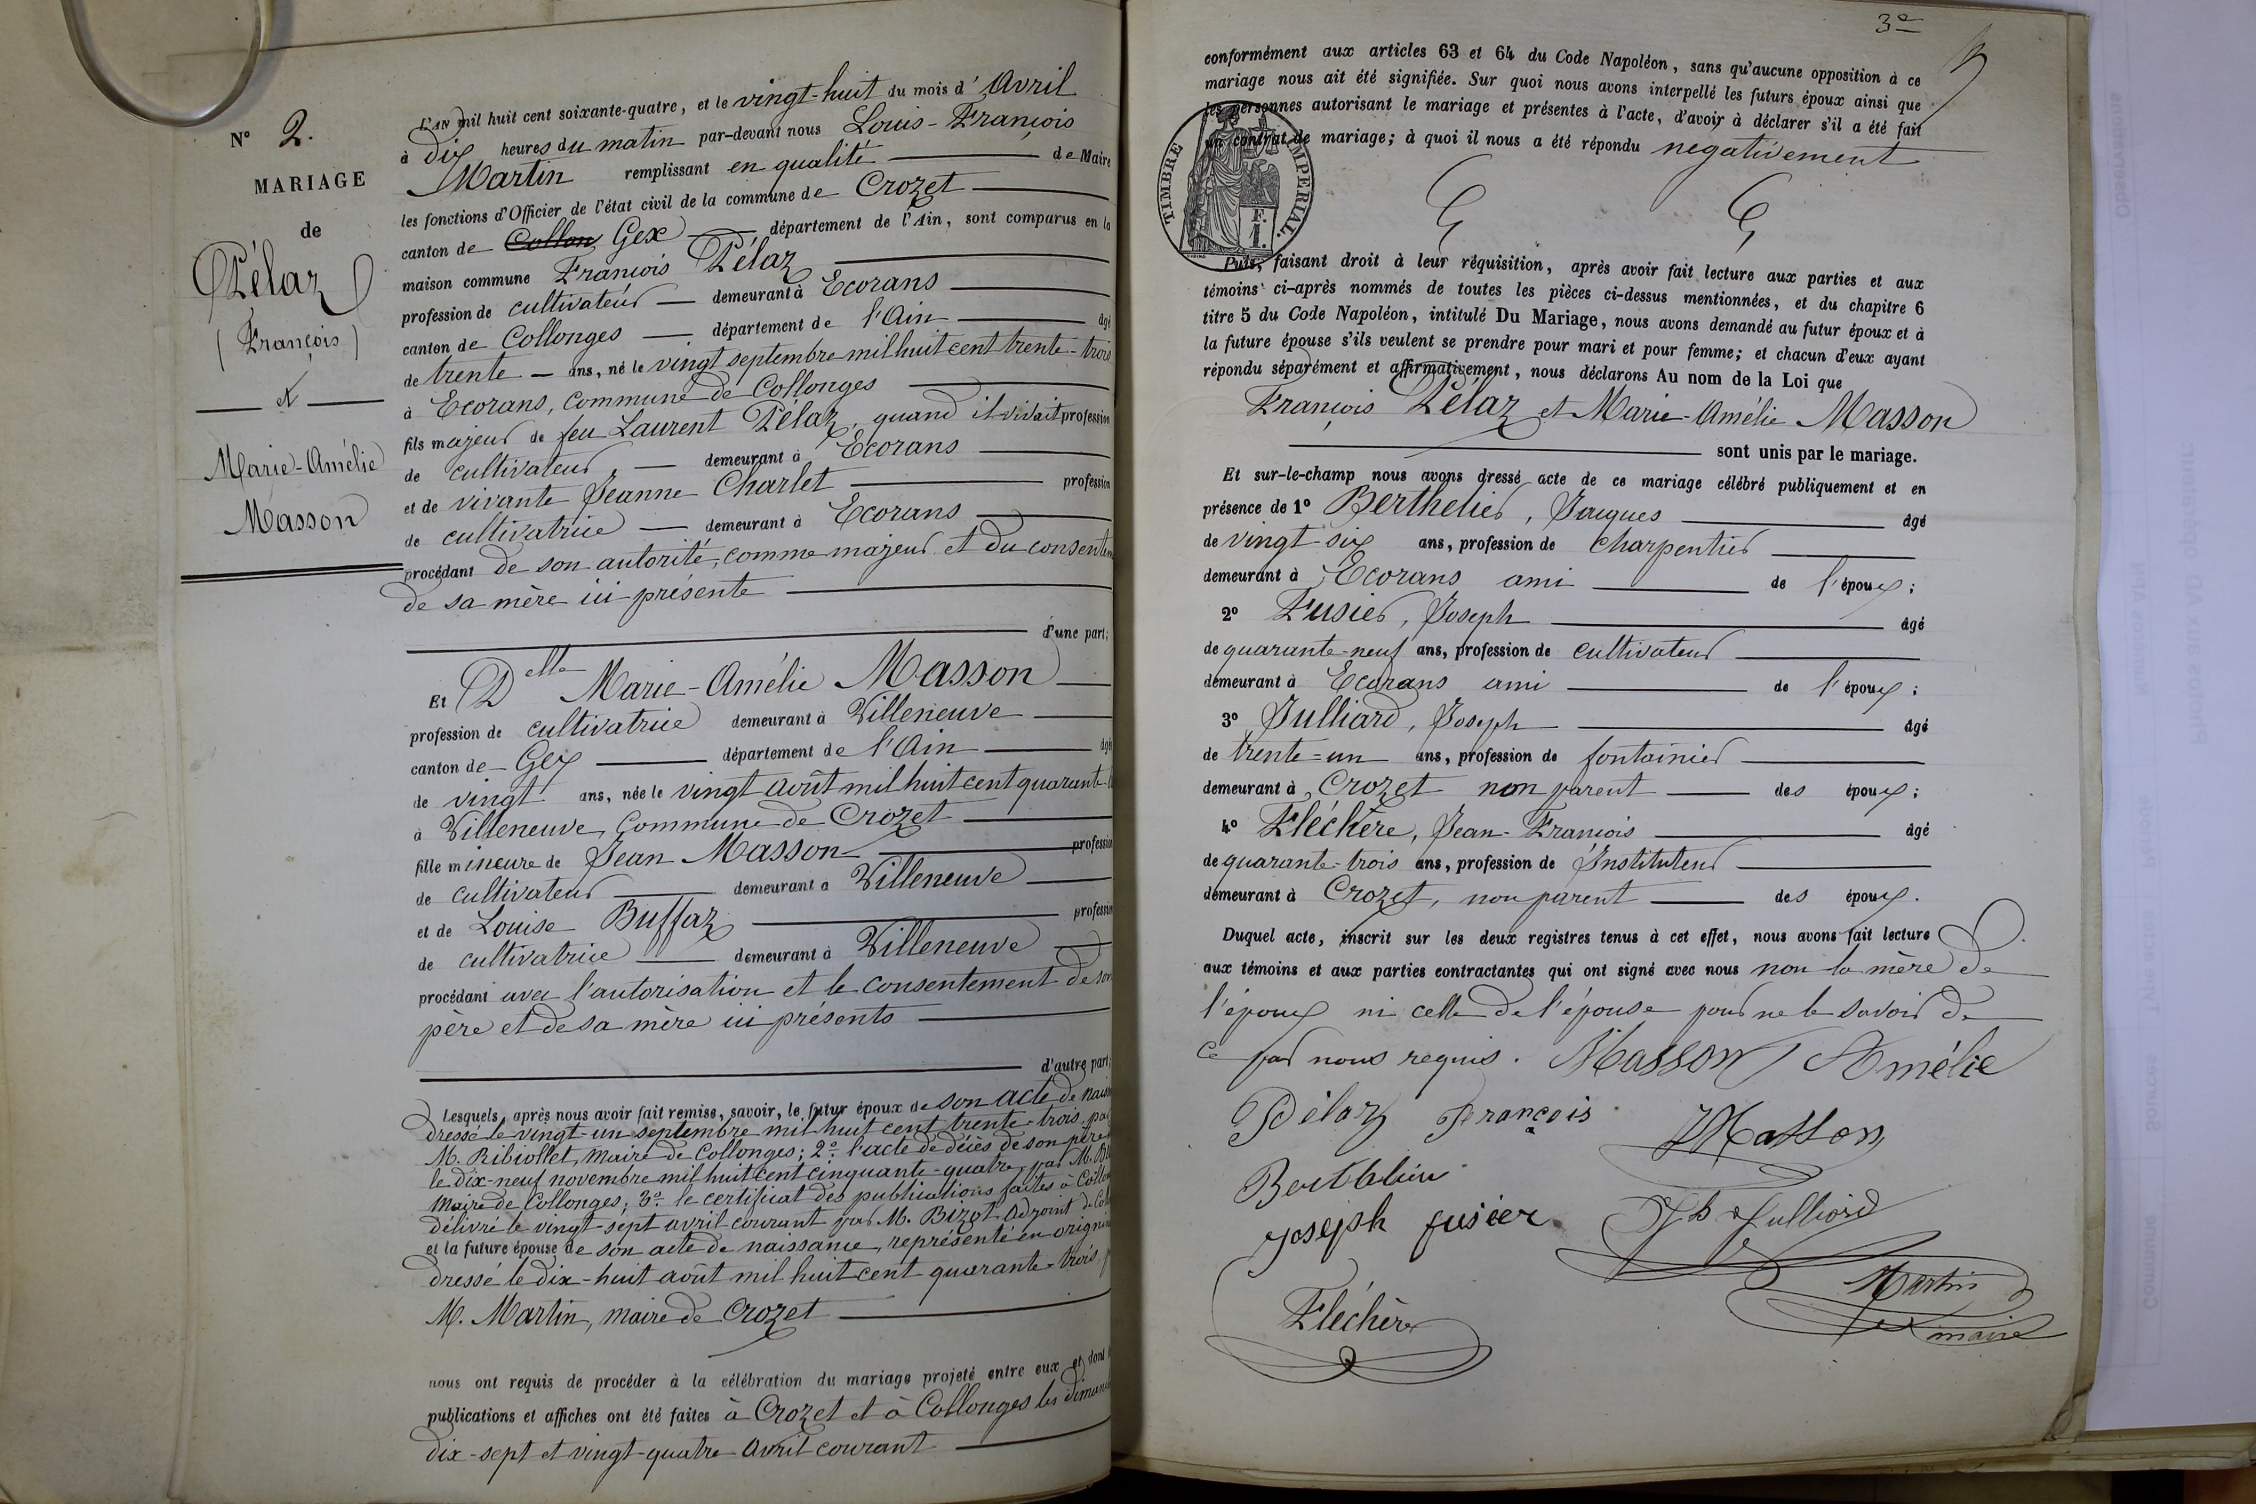 N° 2.
MARIAGE
de
Pélaz
(François)
et
Marie-Amélie
Masson
L'AN mil huit cent soixante-quatre, et le vingt-huit du mois d'Avril
à dix heures du matin par-devant nous Louis-François
Martin remplissant en qualité de Maire
les fonctions d'Officier de l'état civil de la commune de Crozet
canton de Collon Gex département de l'Ain, sont comparus en la
maison commune François Pélaz
profession de cultivateur demeurant à Ecorans
canton de Collonges département de l'Ain âgé
de trente ans, né le vingt septembre mil huit cent trente-trois
à Ecorans, commune de Collonges
fils majeur de feu Laurent Pélaz, quand il vivait profession
de cultivateur demeurant à Ecorans
et de vivante Jeanne Charlet profession
de cultivatrice demeurant à Ecorans
procédant de son autorité, comme majeur et du consentem
de sa mère ici présente
d'une part;
Et Delle Marie-Amélie Masson
profession de cultivatrice demeurant à Villeneuve
canton de Gex département de l'Ain âgé
de vingt ans, née le vingt août mil huit cent quarante-
à Villeneuve, Commune de Crozet
fille mineure de Jean Masson profession
de cultivateur demeurant à Villeneuve
et de Louise Buffaz profession
de cultivatrice demeurant à Villeneuve
procédant avec l'autorisation et le consentement de son
père et de sa mère ici présents
d'autre part;
Lesquels, après nous avoir fait remise, savoir, le futur époux de son acte de nais
dressé le vingt-un septembre mil huit cent trente-trois, par
M. Ribiollet, maire de Collonges; 2° l'acte de décès de son père
le dix-neuf novembre mil huit cent cinquante-quatre, par M.
Maire de Collonges; 3° le certificat des publications faites à Collon
délivré le vingt-sept avril courant par M. Bizot adjoint de Col
et la future épouse de son acte de naissance, représenté en origin
dressé le dix-huit août mil huit cent quarante-trois, p
M. Martin, maire de Crozet
nous ont requis de procéder à la célébration du mariage projeté entre eux et dont
publications et affiches ont été faites à Crozet et à Collonges les diman
dix-sept et vingt-quatre Avril courant
3e
conformément aux articles 63 et 64 du Code Napoléon, sans qu'aucune opposition à ce
mariage nous ait été signifiée. Sur quoi nous avons interpellé les futurs époux ainsi que
les personnes autorisant le mariage et présentes à l'acte, d'avoir à déclarer s'il a été fait
un contrat de mariage; à quoi il nous a été répondu negativement
TIMBRE IMPERIAL.
F.
I.
Puis, faisant droit à leur réquisition, après avoir fait lecture aux parties et aux
témoins ci-après nommés de toutes les pièces ci-dessus mentionnées, et du chapitre 6
titre 5 du Code Napoléon, intitulé Du Mariage, nous avons demandé au futur époux et à
la future épouse s'ils veulent se prendre pour mari et pour femme; et chacun d'eux ayant
répondu séparément et affirmativement, nous déclarons Au nom de la Loi que
François Pélaz et Marie-Amélie Masson
sont unis par le mariage.
Et sur-le-champ nous avons dressé acte de ce mariage célébré publiquement et en
présence de 1° Berthelier, Jacques âgé
de vingt six ans, profession de charpentier
demeurant à Ecorans ami de l'époux;
2° Fusier, Joseph âgé
de quarante-neuf ans, profession de cultivateur
demeurant à Ecorans ami de l'époux;
3° Julliard, Joseph âgé
de trente-un ans, profession de fontainier
demeurant à Crozet non parent des époux;
4° Fléchère, Jean-François âgé
de quarante-trois ans, profession de Instituteur
demeurant à Crozet, non parent des époux.
Duquel acte, inscrit sur les deux registres tenus à cet effet, nous avons fait lecture
aux témoins et aux parties contractantes qui ont signé avec nous non la mère de
l'époux ni celle de l'épouse pour ne le savoir de
ce par nous requis. Masson Amélie
Pélaz François
JMasson
Joseph fusier
Jh Julliard
Martin
maire
Fléchère